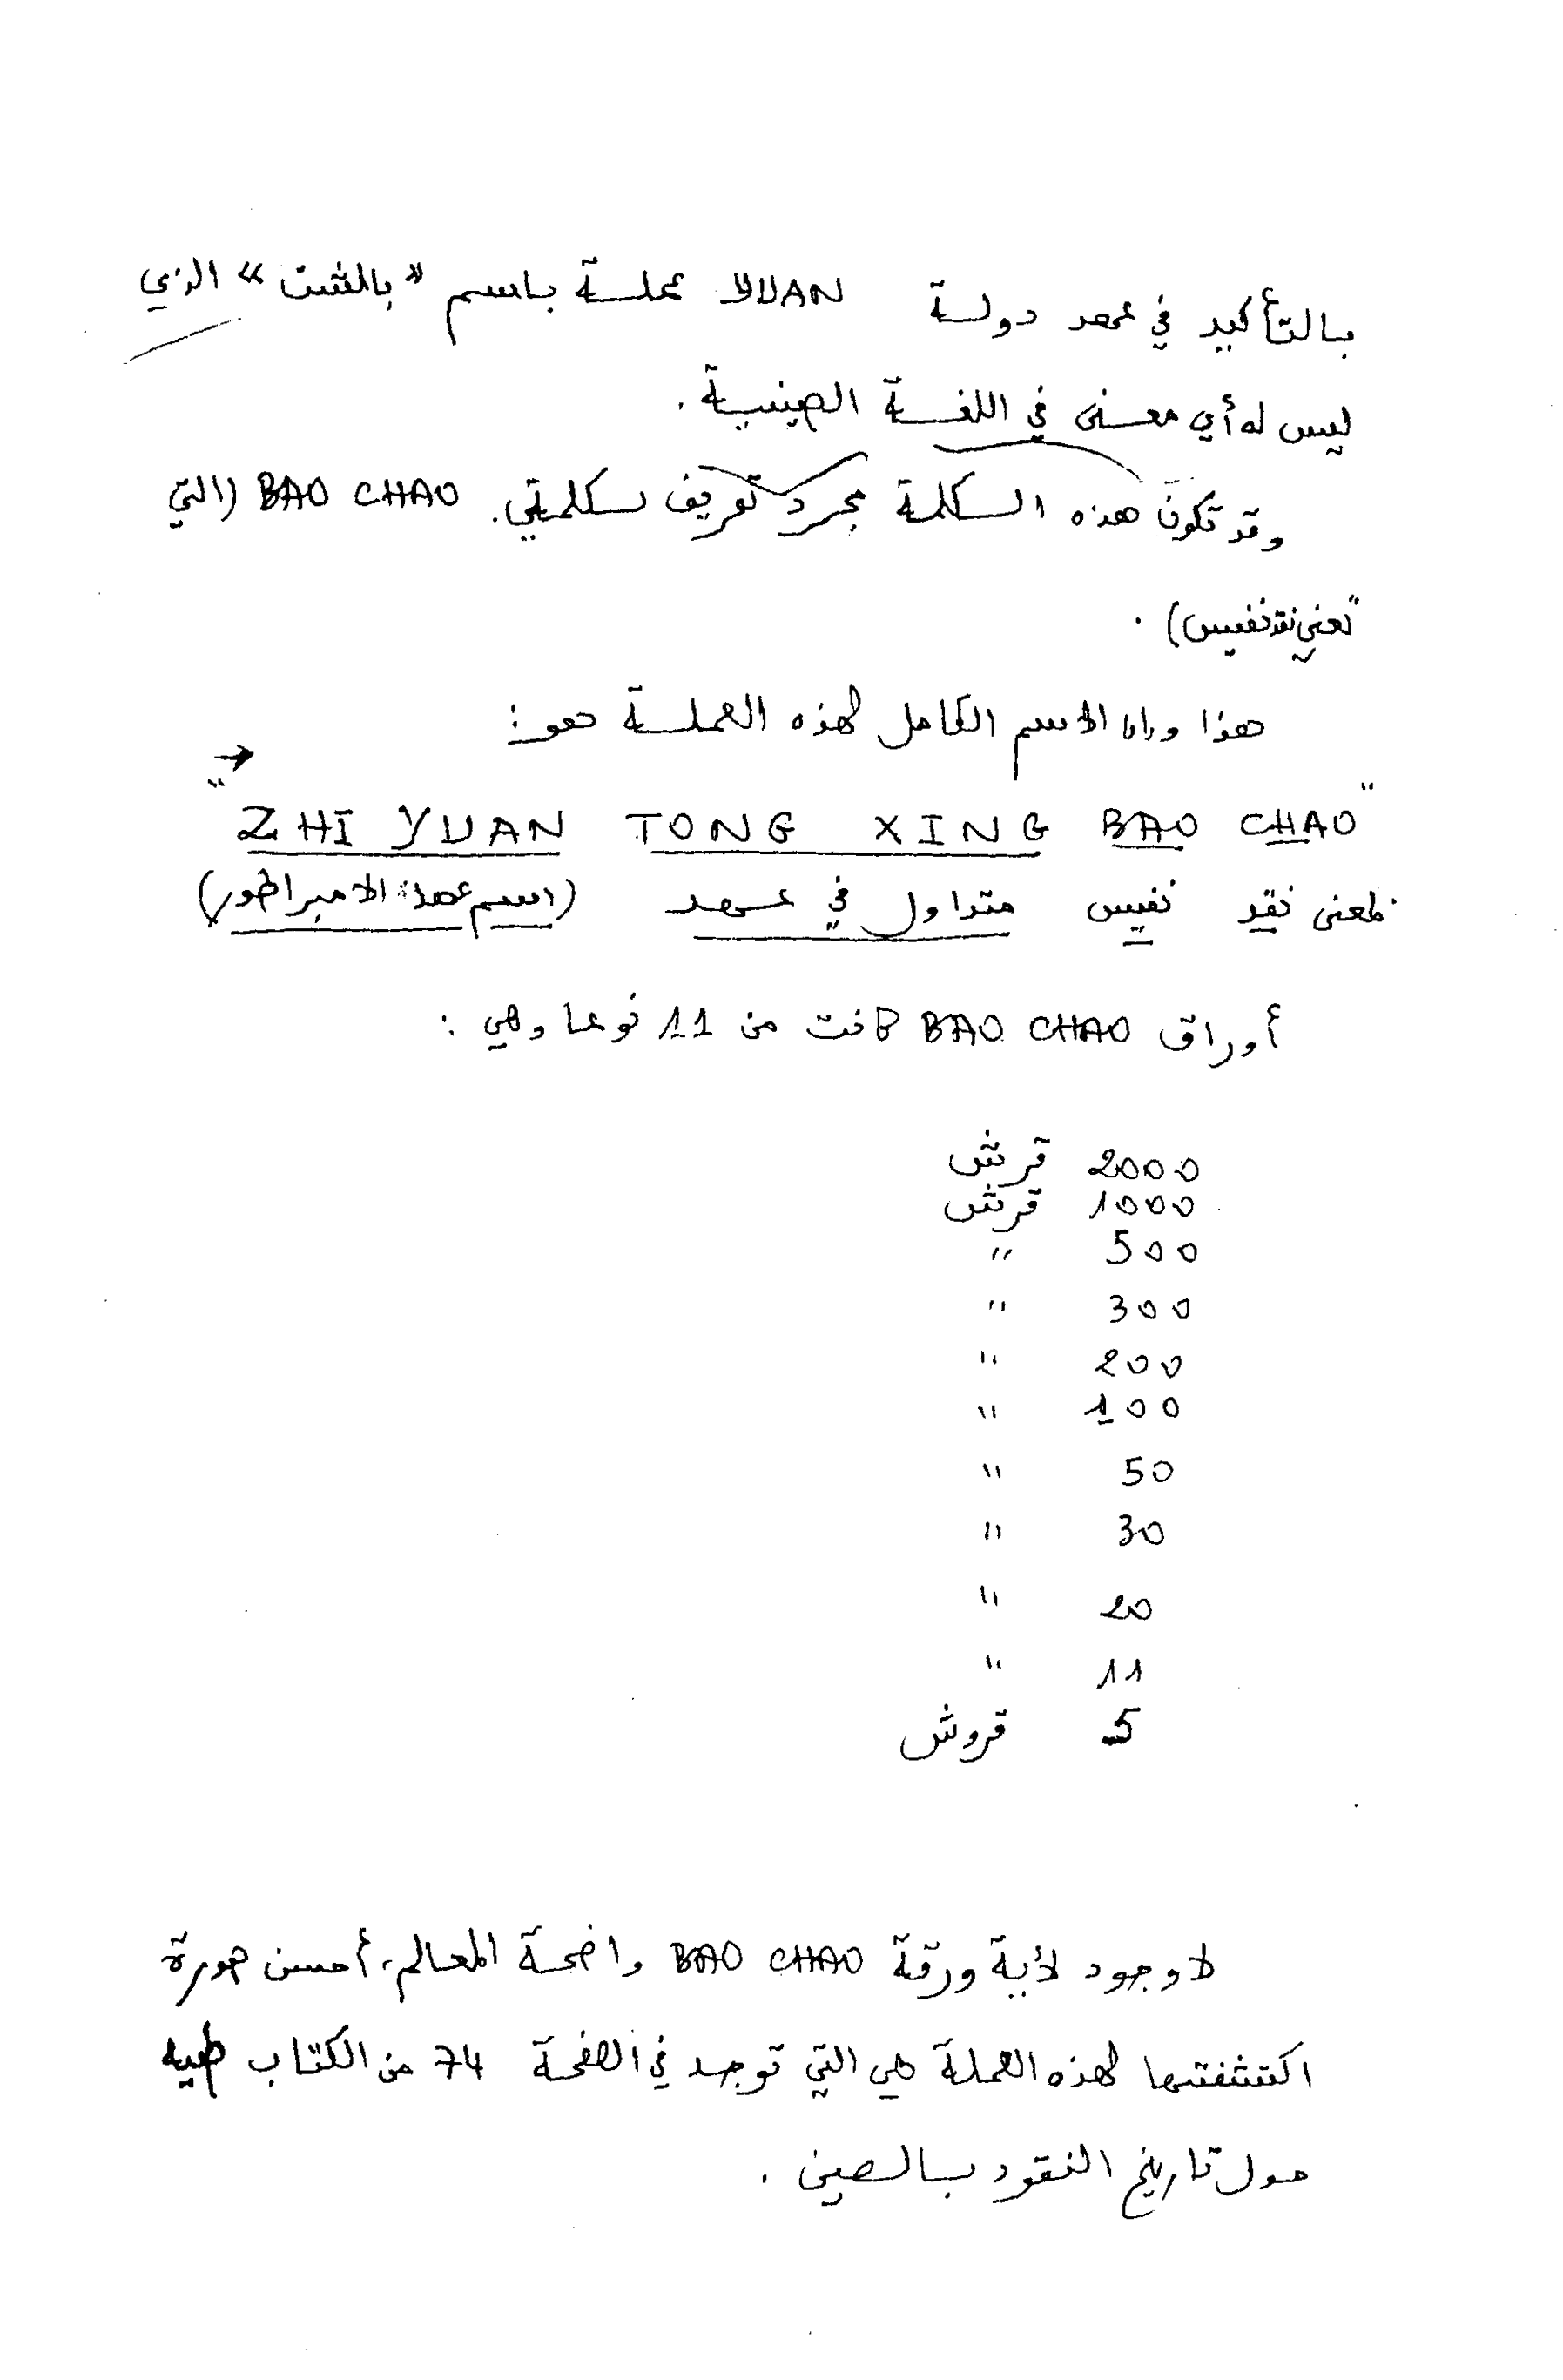 بالتأكيد في عهد دولة YUAN عملة باسم "بالشت" الذي
ليس له أي معنى في اللغة الصينية.
وقد تكون هذه الكلمة مجرد تعريف لكلمتي. BAO CHAO (التي
تعني نقد نفيس).
هذا وان الاسم الكامل لهذه العملة هو:
→
"ZHI YUAN TONG XING BAO CHAO"
بمعنى نقد نفيس متداول في عهد (اسم عهد الامبراطور)
أوراق BAO CHAO كانت من 11 نوعا وهي:
2000 قرش
1000 قرش
500 "
300 "
200 "
100 "
50 "
30 "
20 "
11 "
5 قروش
لا وجود لأية ورقة BAO CHAO واضحة المعالم، أحسن صورة
اكتشفتها لهذه العملة هي التي توجد في الصفحة 74 من الكتاب طيه
حول تاريخ النقود بالصين.